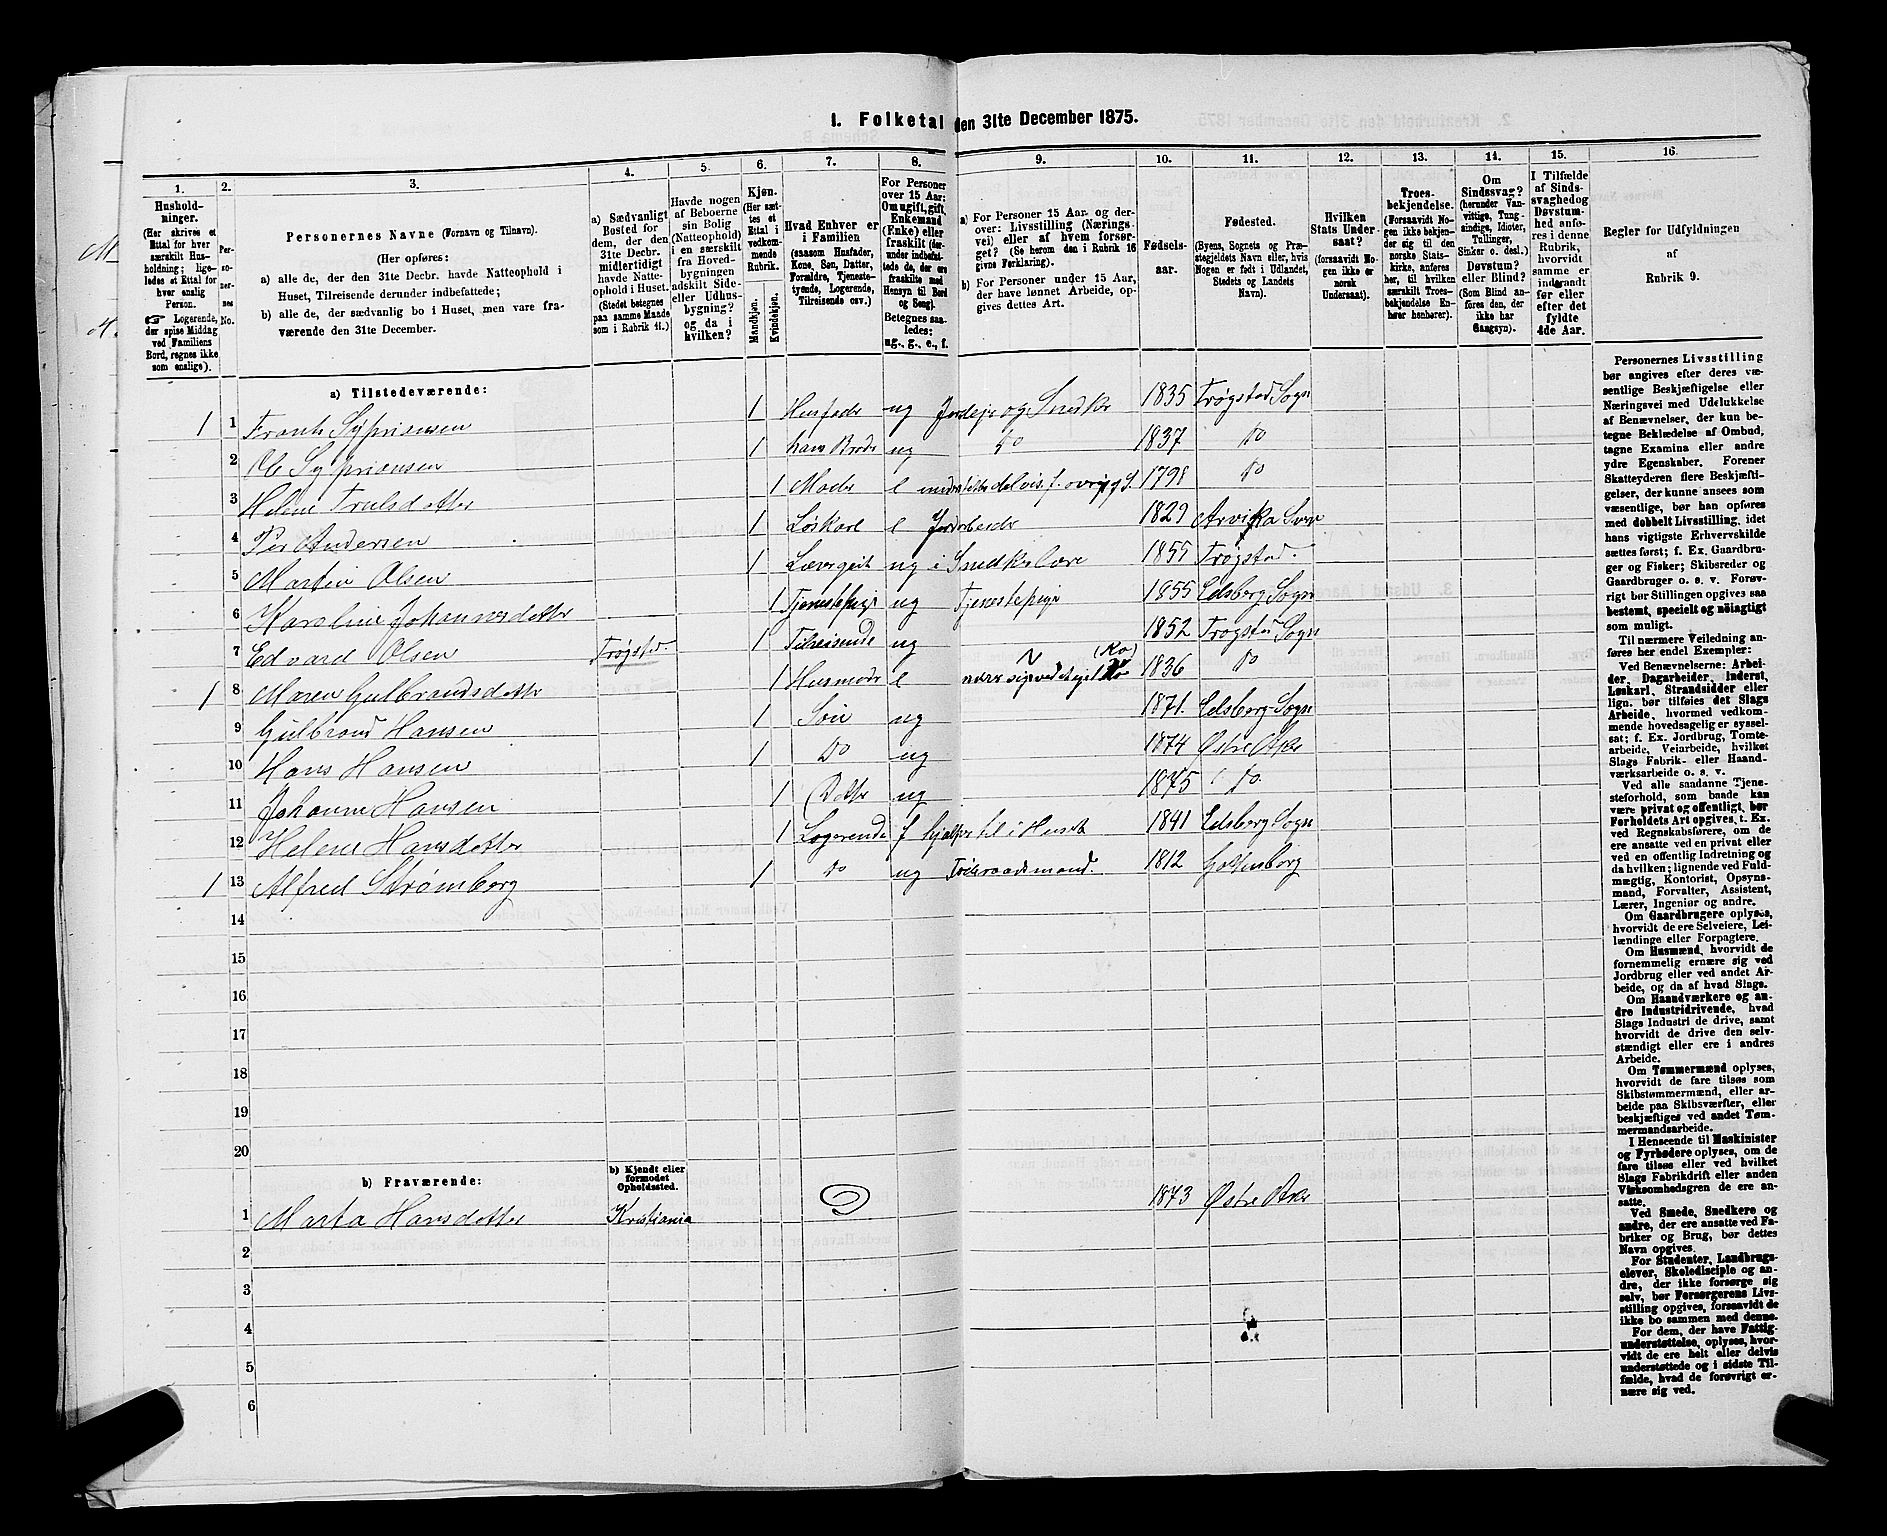 1. Folketal den 31te December 1875.
1.
Hushold-
ninger.
(Her skrives et
Ettal for hver
særskilt Hus-
holdning; lige-
ledes et Ettal for
hver enslig
Person.
☞ Logerende,
der spise Middag
ved Familiens
Bord, regnes ikke
som enslige).
2.
Per-
so-
ner-
nes
No.
3.
Personernes Navne (Fornavn og Tilnavn).
(Her opføres:
a) alle de, der den 31te Decbr. havde Natteophold i
Huset, Tilreisende derunder indbefattede;
b) alle de, der sædvanlig bo i Huset, men vare fra-
værende den 31te December.
4.
a) Sædvanligt
Bosted for
dem, der den
31te Decbr.
midlertidigt
havde Natte-
ophold i Huset.
(Stedet betegnes
paa samme Maade
som i Rubrik 11.)
5.
Havde nogen
af Beboerne
sin Bolig
(Natteophold)
i en særskilt
fra Hoved-
bygningen
adskilt Side-
eller Udhus-
bygning?
og da i
hvilken?
6.
Kjøn.
(Her sæt-
tes et
Ettal i
vedkom-
mende
Rubrik.
Mandkjøn.
Kvindekjøn.
7.
Hvad Enhver er
i Familien
(saasom Husfader,
Kone, Søn, Datter,
Forældre, Tjeneste-
tyende, Logerende,
Tilreisende osv.)
8.
For Personer
over 15 Aar:
Om ugift, gift,
Enkemand
(Enke) eller
fraskilt (der-
under indbefat-
tede de, der ere
fraskilte med
Hensyn til Bord
og Seng).
Betegnes saa-
ledes:
ug., g., e., f.
9.
a) For Personer 15 Aar og der-
over: Livsstilling (Nærings-
vei) eller af hvem forsør-
get? (Se herom den i Rubrik 16
givne Forklaring).
b) For Personer under 15 Aar,
der have lønnet Arbeide, op-
gives dettes Art.
10.
Fødsels-
aar.
11.
Fødested.
(Byens, Sognets og Præ-
stegjeldets Navn eller, hvis
Nogen er født i Udlandet,
Stedets og Landets
Navn).
12.
Hvilken
Stats Under-
saat?
(forsaavidt No-
gen ikke er
norsk
Undersaat).
13.
Troes-
bekjendelse.
(Forsaavidt No-
gen ikke bekjen-
der sig til den
norske Stats-
kirke, anføres
her, til hvilken
særskilt Troes-
bekjendelse En-
hver hører).
14.
Om
Sindssvag?
eller Blind?
(herunder Van-
vittige, Tung-
sindige, Idioter,
Tullinger,
Sinker o. desl.)
Døvstum?
eller Blind?
(Som Blind an-
føres den, der
ikke har
Gangsyn).
15.
I Tilfælde
af Sinds-
svaghed og
Døvstum-
hed anfø-
res i denne
Rubrik,
hvorvidt
samme er
indtraadt
før eller
efter det
fyldte
4de Aar.
16.
Regler for Udfyldningen
af
Rubrik 9.
a) Tilstedeværende:
1 1 Frants Sypriansen 1 Husfader ug Jordeje og Snedker 1835 Trøgstad Sogn
2 Ole Sypriansen 1 hans Broder ug do 1837 do
3 Helene Trulsdatter 1 Moder e 1798 do
4 Per Andersen 1 Løskarl e Jordarbeider 1829 Arvika Sverr
5 Martin Olsen 1 Læregut ug i Snedkerlære 1855 Trøgstad.
6 Karoline Johannesdatter 1 Tjenestepige ug Tjenestepige 1855 Edsberg Sogn
7 Edvard Olsen Trøgstad. 1 Tilreisende ug 1852 Trøgstad Sogn
1 8 Maren Gulbrandsdatter 1 Husmoder e (Ko) 1836 do
9 Gulbrand Hansen 1 Søn ug 1871. Edsberg Sogn
10 Hans Hansen 1 Do ug 1874 Østre Aker
11 Johanne Hansen 1 Datter ug 1875 do
12 Helene Hansdatter 1 Logerende f hjælper til i Huset 1841 Edsberg Sogn
1 13 Alfred Strömberg 1 do ug 1812 Gothenborg
14
15
16
17
18
19
20
b) Fraværende:
b) Kjendt eller
formodet
Opholdssted.
1 Marta Hansdatter Kristiania 1873 Østre Aker
2
3
4
5
6
Personernes Livsstilling
bør angives efter deres væ-
sentlige Beskjæftigelse eller
Næringsvei med Udelukkelse
af Benævnelser, der kun be-
tegne Beklædelse af Ombud,
tagne Examina eller andre
ydre Egenskaber. Forener
Skatteyderen flere Beskjæfti-
gelser, der kunne ansees som
væsentlige, bør han opføres
med dobbelt Livsstilling, idet
hans vigtigste Erhvervskilde
sættes først; f. Ex. Gaardbru-
ger og Fisker; Skibsreder og
Gaardbruger o. s. v. Forøv-
rigt bør Stillingen opgives saa
bestemt, specielt og nöiagtigt
som muligt.
Til nærmere Veiledning an-
føres her endel Exempler:
Ved Benævnelserne: Arbei-
der, Dagarbeider, Inderst,
Løskarl, Strandsidder eller
lign. bør tilføies det Slags
Arbeide, hvormed vedkom-
mende hovedsagelig er syssel-
sat; f. Ex. Jordbrug, Tomte-
arbeide, Veiarbeide, hvilket
Slags Fabrik- eller Haand-
værksarbeide o. s. v.
Ved alle saadanne Tjene-
steforhold, som baade kan
være privat og offentligt, bør
Forholdets Art opgives, t. Ex.
ved Regnskabsførere, om de
ere ansatte ved en privat eller
ved en offentlig Indretning og
da hvilken; lignende ved Fuld-
mægtig, Kontorist, Opsyns-
mand, Forvalter, Assistent,
Lærer, Ingeniør og andre.
Om Gaardbrugere oplyses,
hvorvidt de ere Selveiere, Lei-
lændinge eller Forpagtere.
Om Husmænd, hvorvidt de
fornemmelig ernære sig ved
Jordbrug eller ved andet Ar-
beide, og da af hvad Slags.
Om Haandværkere og an-
dre Industridrivende, hvad
Slags Industri de drive, samt
hvorvidt de drive den selv-
stændigt eller ere i andres
Arbeide.
Om Tømmermænd oplyses,
hvorvidt de fare tilsøs som
Skibstømmermænd, eller ar-
beide paa Skibsværfter, eller
beskjæftiges ved andet Tøm-
mermandsarbeide.
I Henseende til Maskinister
og Fyrbødere oplyses, om de
fare tilsøs eller ved hvilket
Slags Fabrikdrift eller anden
Virksomhedsgren de ere an-
satte.
Ved Smede, Snedkere og
andre, der ere ansatte ved Fa-
briker og Brug, bør dettes
Navn opgives.
For Studenter, Landbrugs-
elever, Skoledisciple og an-
dre, der ikke forsørge sig
selv, bør Forsørgerens Livs-
stilling opgives, forsaavidt de
ikke bo sammen med denne.
For dem, der have Fattig-
understøttelse, oplyses, hvor-
vidt de ere helt eller delvis
understøttede og i sidste Til-
fælde, hvad de forøvrigt er-
nære sig ved.